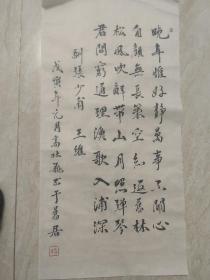 晚年惟好静万事不关心
自顾无长策空知返旧林
松风吹解带山月照弹琴
君问穷通理渔歌入浦深
酬张少府 王维
戊寅年元月高社
书于菖居